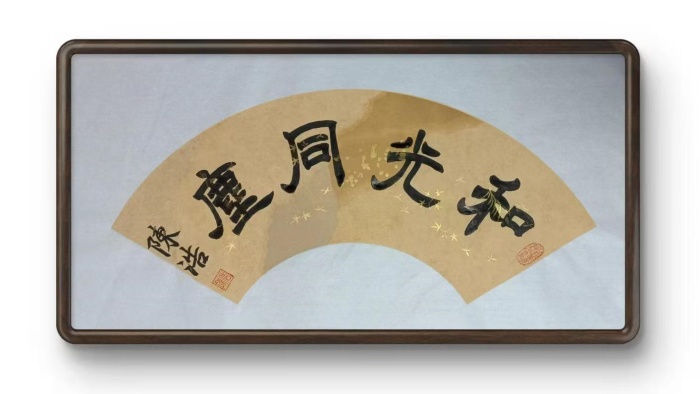 和光同塵
陳浩